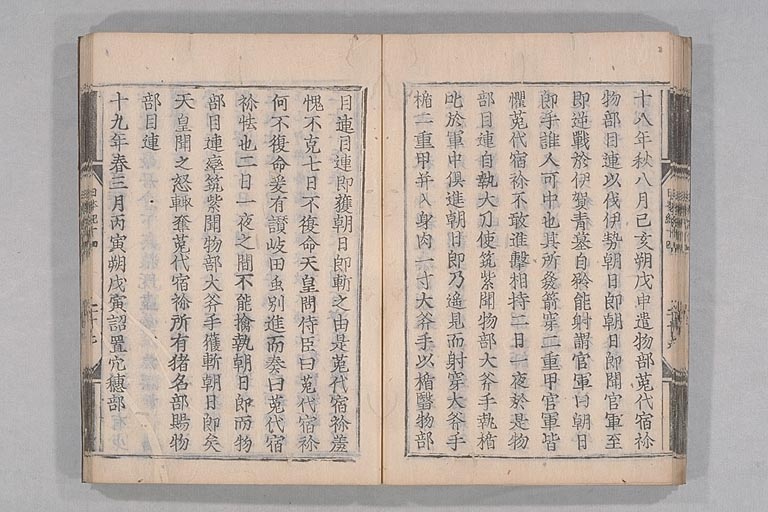 十八年秋八月己亥朔戊申遣物部菟代宿祢
物部目連以伐伊勢朝日郎朝日郎聞官軍至
即逆戰於伊賀青墓自矜能射謂官軍曰朝日
郎手誰人可中也其所發箭穿二重甲官軍皆
懼菟代宿祢不敢進擊相持二日一夜於是物
部目連自執大刀使筑紫聞物部大斧手執楯
叱於軍中俱進朝日郎乃遙見而射穿大斧手
楯二重甲并入身肉一寸大斧手以楯翳物部
目連目連即獲朝日郎斬之由是菟代宿祢羞
愧不克七日不復命天皇問侍臣曰菟代宿祢
何不復命爰有讃岐田虫別進而奏曰菟代宿
祢怯也二日一夜之間不能擒執朝日郎而物
部目連率筑紫聞物部大斧手獲斬朝日郎矣
天皇聞之怒輙奪菟代宿祢所有猪名部賜物
部目連
十九年春三月丙寅朔戊寅詔置穴穗部